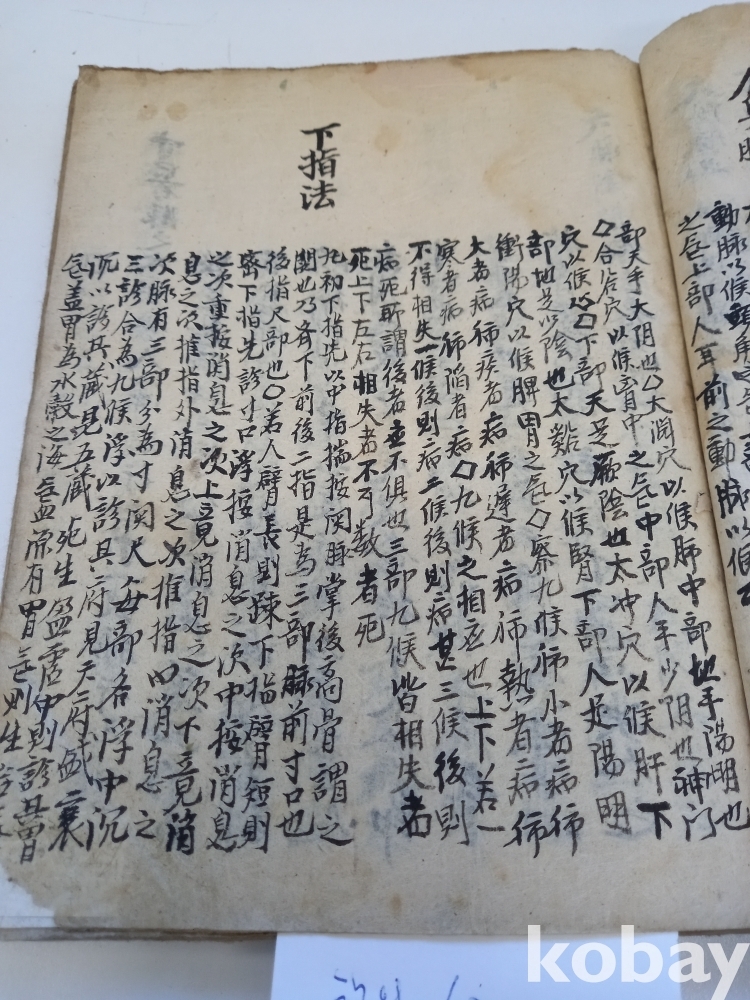 動脉以候頭角
之氣上部人耳前之動脉以候
部天手大阴也〇大渊穴以候肺中部地手陽明也
〇合谷穴以候胷中之气中部人手少阴也神门
穴以候心〇下部天足厥陰也太冲穴以候肝下
部地足少陰也太谿穴以候腎下部人足陽明
衝陽穴以候脾胃之气〇察九候獨小者病獨
大者病獨疾者病獨遲者病獨熱者病獨
寒者病獨陷者病〇九候之相应也上下若一
不得相失一候後則病二候後則病甚三候後則
病死所謂後者並不俱也三部九候皆相失者
死上下左右相失者不可数者死
下指法
凡初下指先以中指揣按関脉掌後高骨謂之
関也乃齐下前後二指是為三部脉前寸口也
後指尺部也〇若人臂長則疎下指臂短則
密下指先診寸口浮按消息之次中按消息
之次重按消息之次上竟消息之次下竟消
息之次推指外消息之次推指内消息之
次脉有三部分為寸関尺每部各浮中沉
三診合為九候浮以診其府見六府盛衰
沉以診其蔵見五蔵死生盈虚中則診其胃
气盖胃為水穀之海 有胃气則生